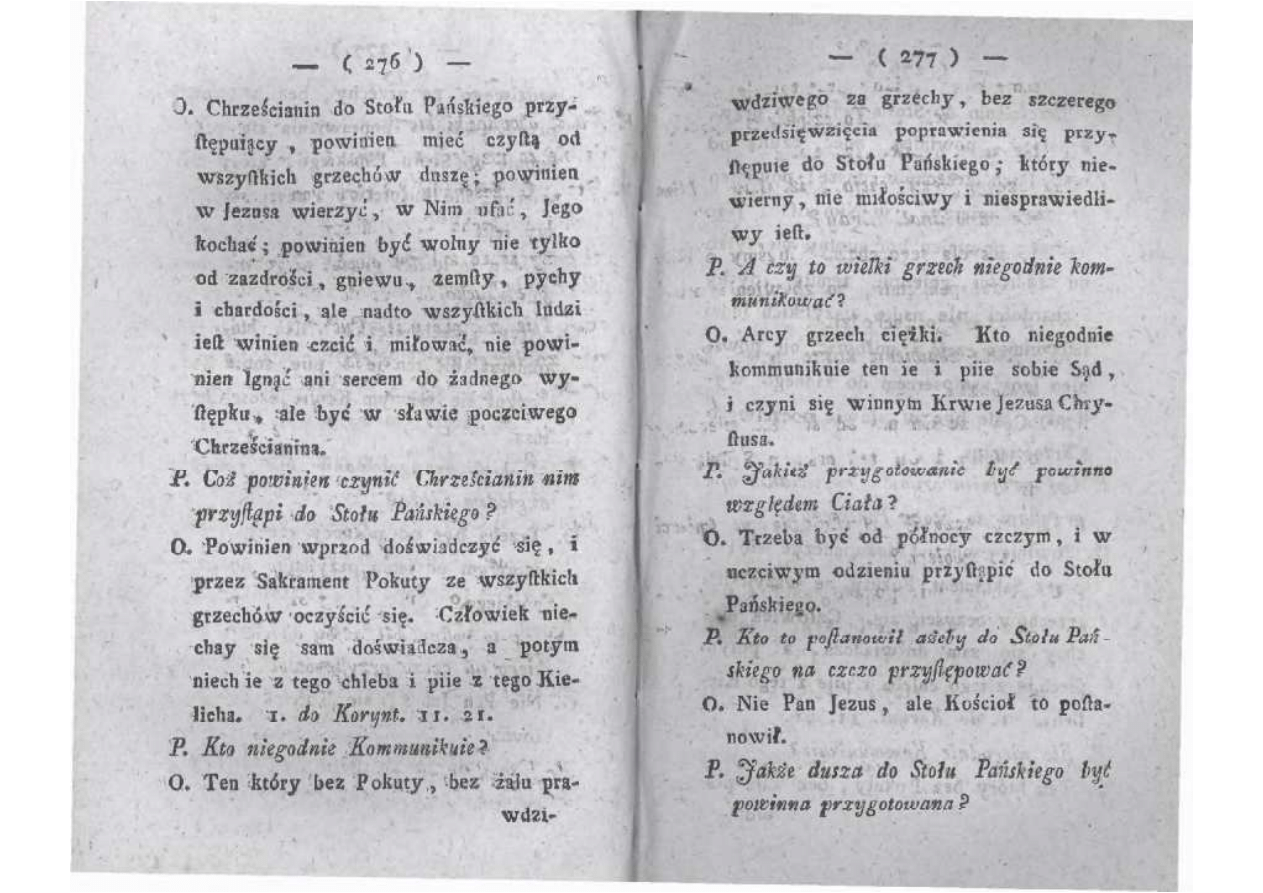 — ( 276 ) —
O. Chrześcianin do Stołu Pańskiego przy-
ſtępuiący , powinien mieć czyſtą od
wszyſtkich grzechów duszę ; powinien
w Jezusa wierzyć , w Nim ufać , Jego
kochać ; powinien być wolny nie tylko
od zazdrości , gniewu , zemſty , pychy
i chardości , ale nadto wszyſtkich ludzi
ieſt winien czcić i miłować , nie powi-
nien lgnąć ani sercem do żadnego wy-
ſtępku , ale być w sławie poczciwego
Chrześcianina.
P. Coż powinien czynić Chrześcianin nim
przyſtąpi do Stołu Pańskiego ?
O. Powinien wprzod doświadczyć się , i
przez Sakrament Pokuty ze wszyſtkich
grzechów oczyścić się. Człowiek nie-
chay się sam doświadcza , a potym
niech ie z tego chleba i piie z tego Kie-
licha. 1. do Korynt. 11. 21.
P. Kto niegodnie Kommunikuie ?
O. Ten który bez Pokuty , bez żalu pra-
wdzi-
— ( 277 ) —
wdziwego za grzechy , bez szczerego
przedsięwzięcia poprawienia się przy-
ſtępuie do Stołu Pańskiego ; który nie-
wierny , nie miłościwy i niesprawiedli-
wy ieſt.
P. A czy to wielki grzech niegodnie kom-
munikować ?
O. Arcy grzech ciężki. Kto niegodnie
kommunikuie ten ie i piie sobie Sąd ,
i czyni się winnym Krwie Jezusa Chry-
ſtusa.
P. Jakież przygotowanie być powinno
względem Ciała ?
O. Trzeba być od północy czczym , i w
uczciwym odzieniu przyſtąpić do Stołu
Pańskiego.
P. Kto to poſtanowił ażeby do Stołu Pań-
skiego na czczo przyſtępować ?
O. Nie Pan Jezus , ale Kościoł to poſta-
nowił.
P. Jakże dusza do Stołu Pańskiego być
powinna przygotowana ?